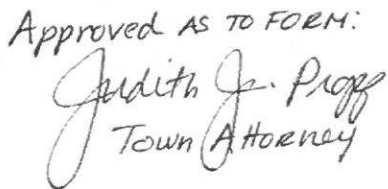 Approved AS TO FORM:
Judith J. Propp
Town Attorney